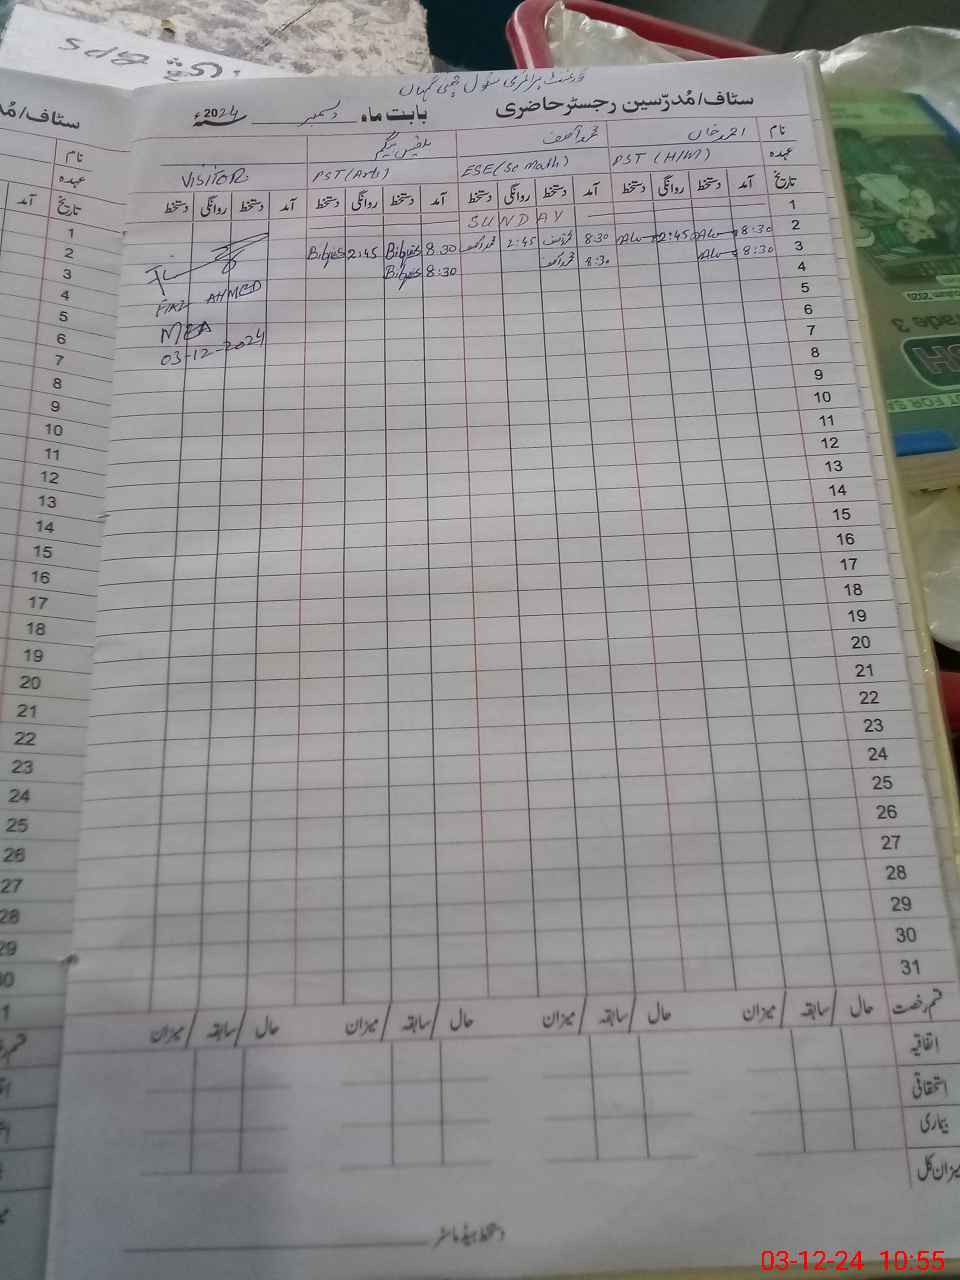 گورنمنٹ پرائمری سکول
سٹاف/مُدرّسین رجسٹرحاضری بابت ماہ دسمبر 2024ء
نام احمد خان محمد آصف بلقیس بیگم
عہدہ PST (H/M) ESE (Sc Math) PST (Arts) VISITOR
تاریخ آمد دستخط روانگی دستخط آمد دستخط روانگی دستخط آمد دستخط روانگی دستخط آمد دستخط روانگی دستخط
1 SUNDAY
2 8:30 2:45 8:30 محمد آصف 2:45 محمد آصف 8:30 Bilqees 2:45 Bilqees
3 8:30 8:30 محمد آصف 8:30 Bilqees
FIAZ AHMED
MEA
03-12-2024
4
5
6
7
8
9
10
11
12
13
14
15
16
17
18
19
20
21
22
23
24
25
26
27
28
29
30
31
قسم رخصت حال سابقہ میزان حال سابقہ میزان حال سابقہ میزان حال سابقہ میزان
اتفاقیہ
استحقاقی
بیماری
میزان کل
دستخط ہیڈماسٹر
سٹاف/مُد
نام
عہدہ
تاریخ آمد
1
2
3
4
5
6
7
8
9
10
11
12
13
14
15
16
17
18
19
20
21
22
23
24
25
26
27
28
29
rade 3
03-12-24 10:55